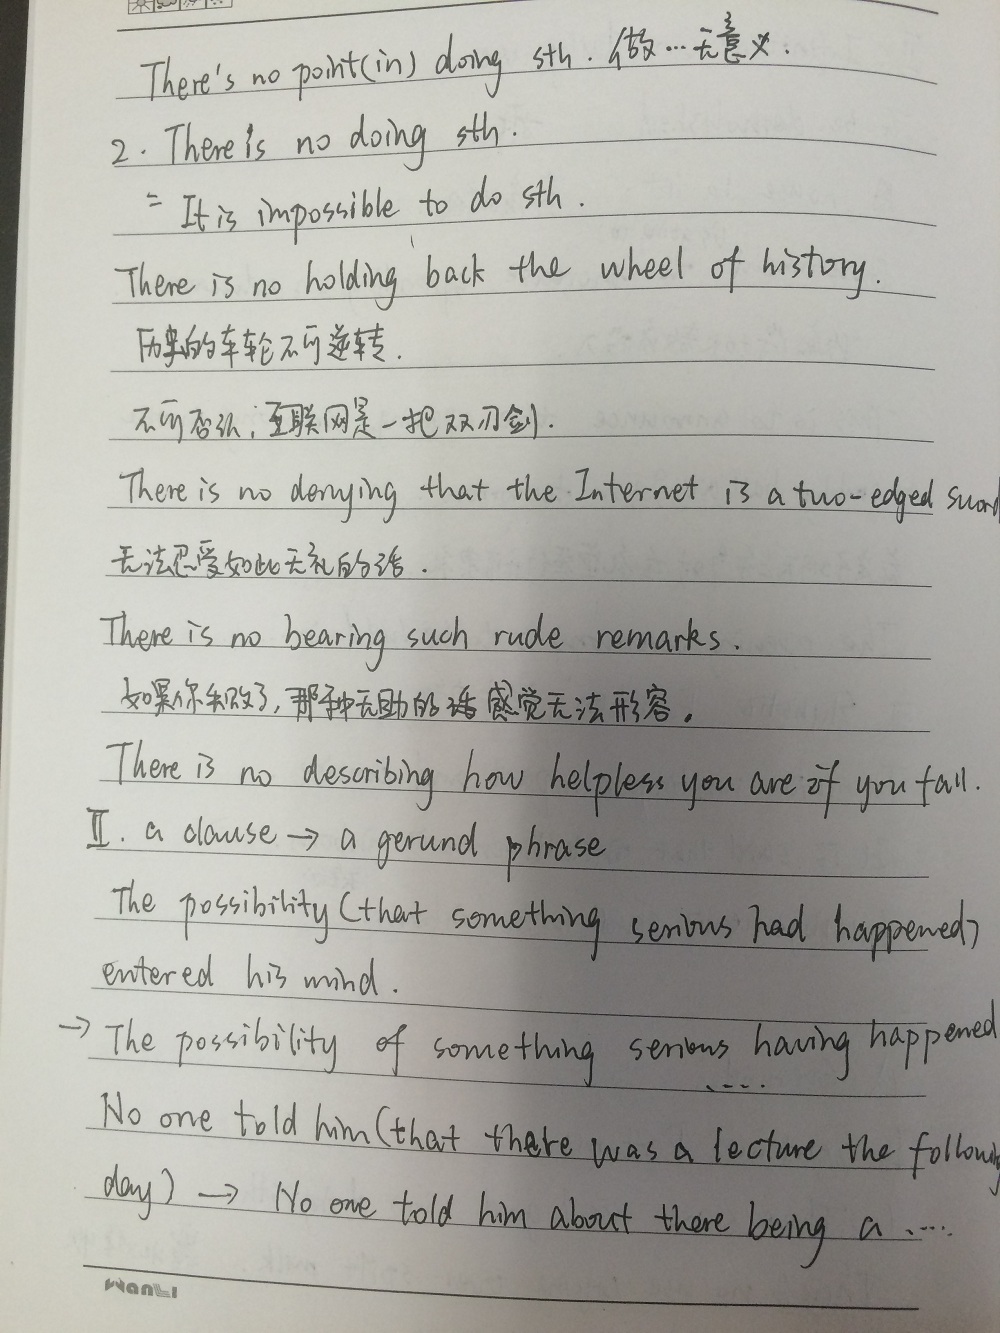 There's no point(in) doing sth. 做…无意义.
2. There is no doing sth.
= It is impossible to do sth.
There is no holding back the wheel of history.
历史的车轮不可逆转.
不可否认,互联网是一把双刃剑.
There is no denying that the Internet is a two-edged sword
无法忍受如此无礼的话.
There is no bearing such rude remarks.
如果你失败了,那种无助的感觉无法形容.
There is no describing how helpless you are if you fail.
II. a clause → a gerund phrase
The possibility (that something serious had happened)
entered his mind.
→ The possibility of something serious having happened
....
No one told him (that there was a lecture the following
day) → No one told him about there being a ....
WanLi